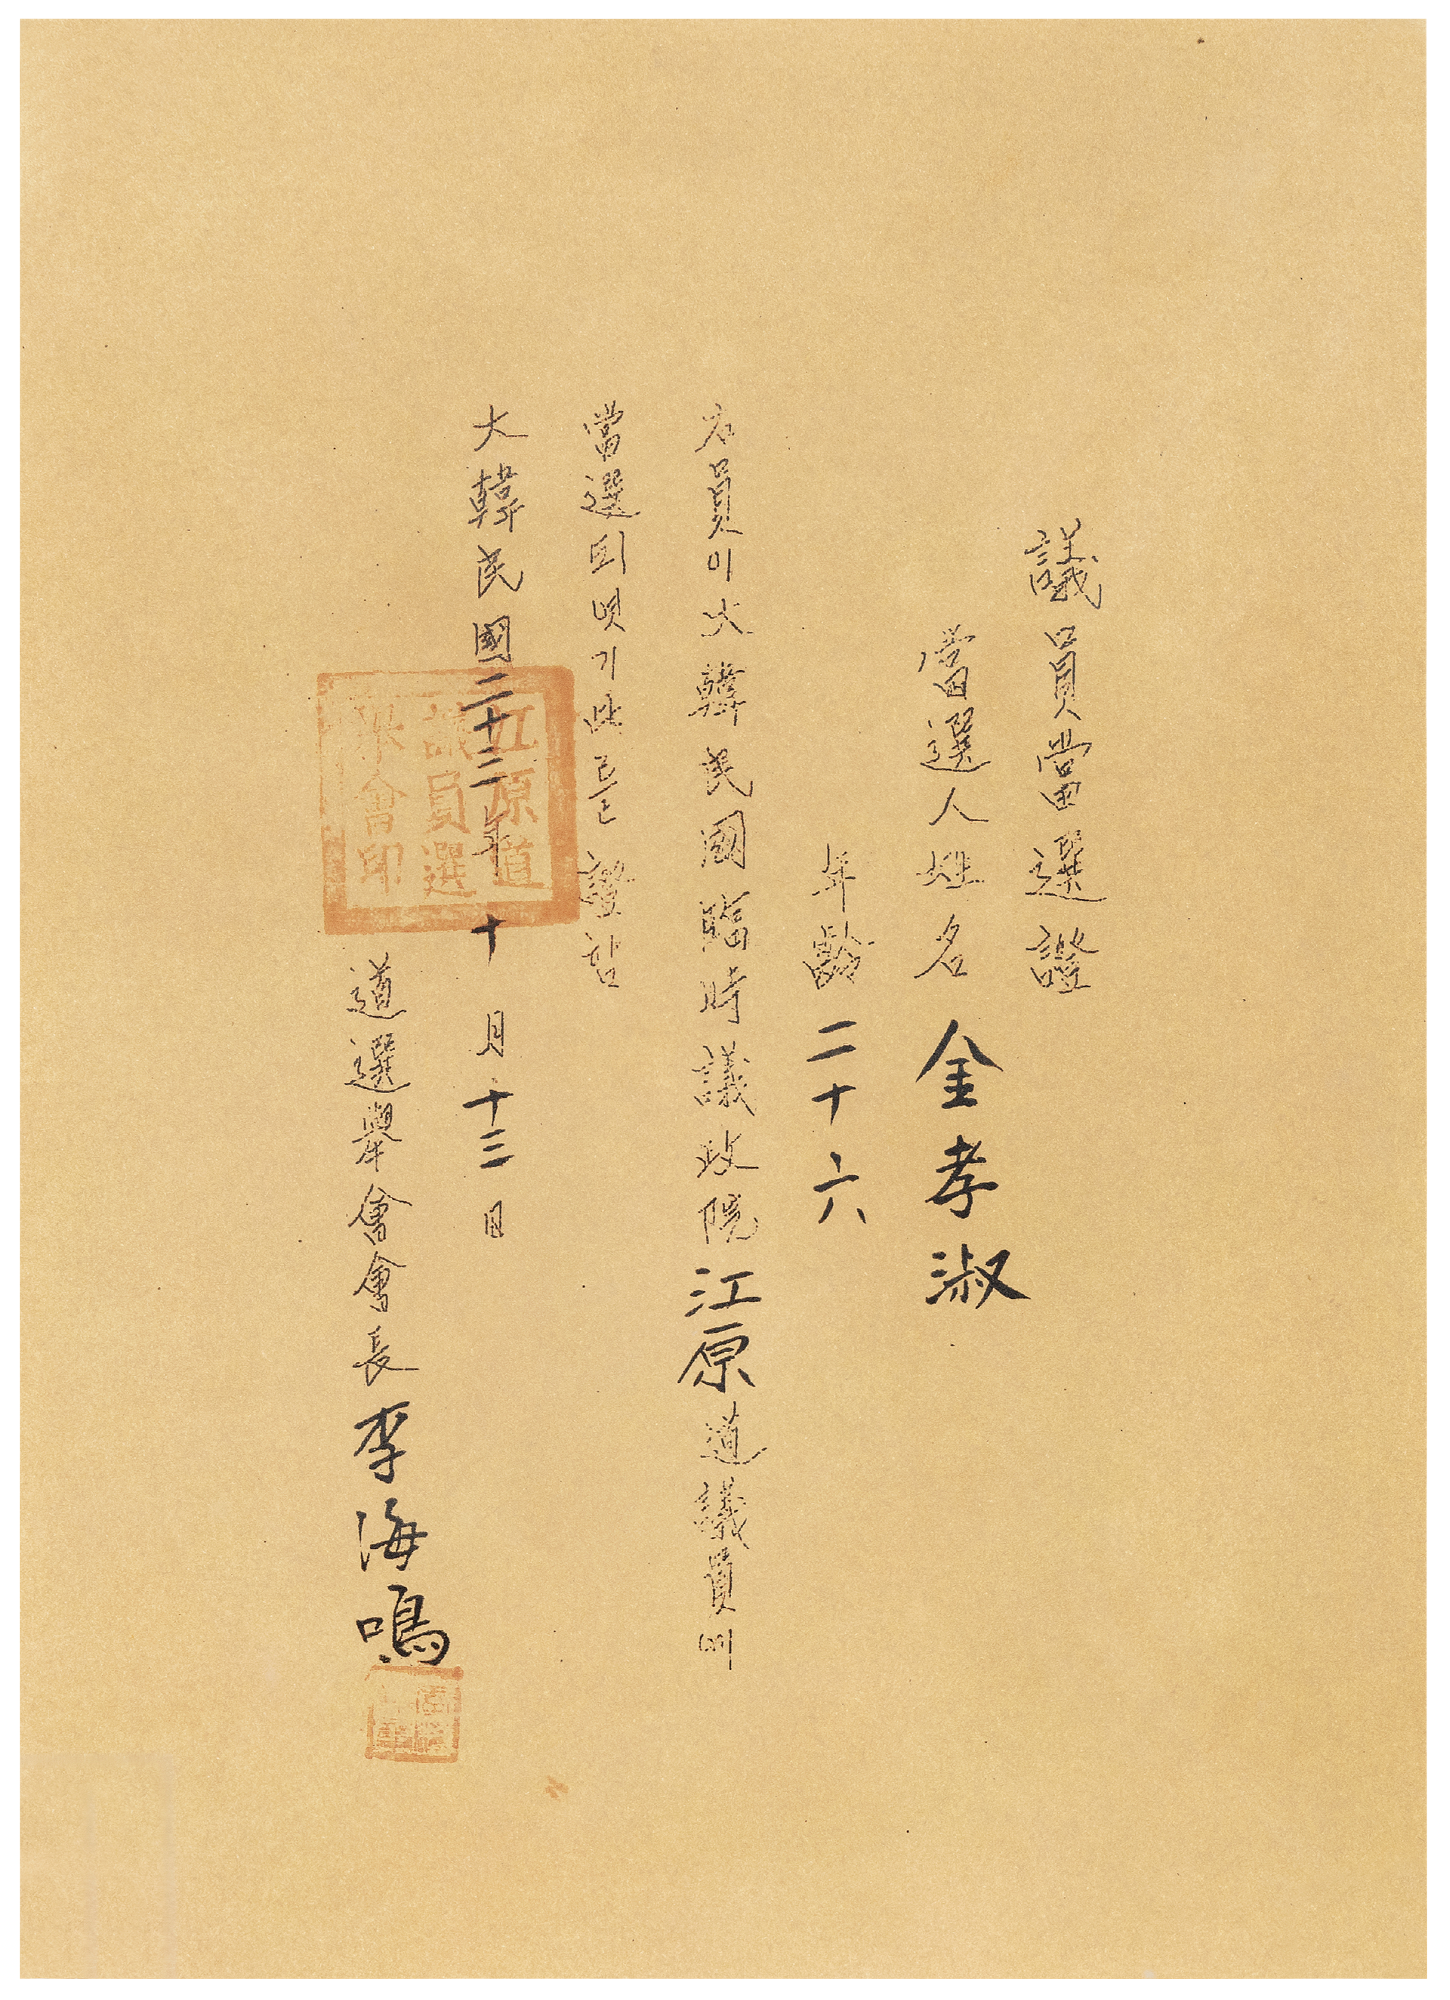 議員當選證
當選人姓名 金孝淑
年齡 二十六
右員이大韓民國臨時議政院江原道議員에
當選되엿기此를證함
大韓民國二十三年十月十三日
道選擧會會長 李海鳴
江原道
議員選
擧會印